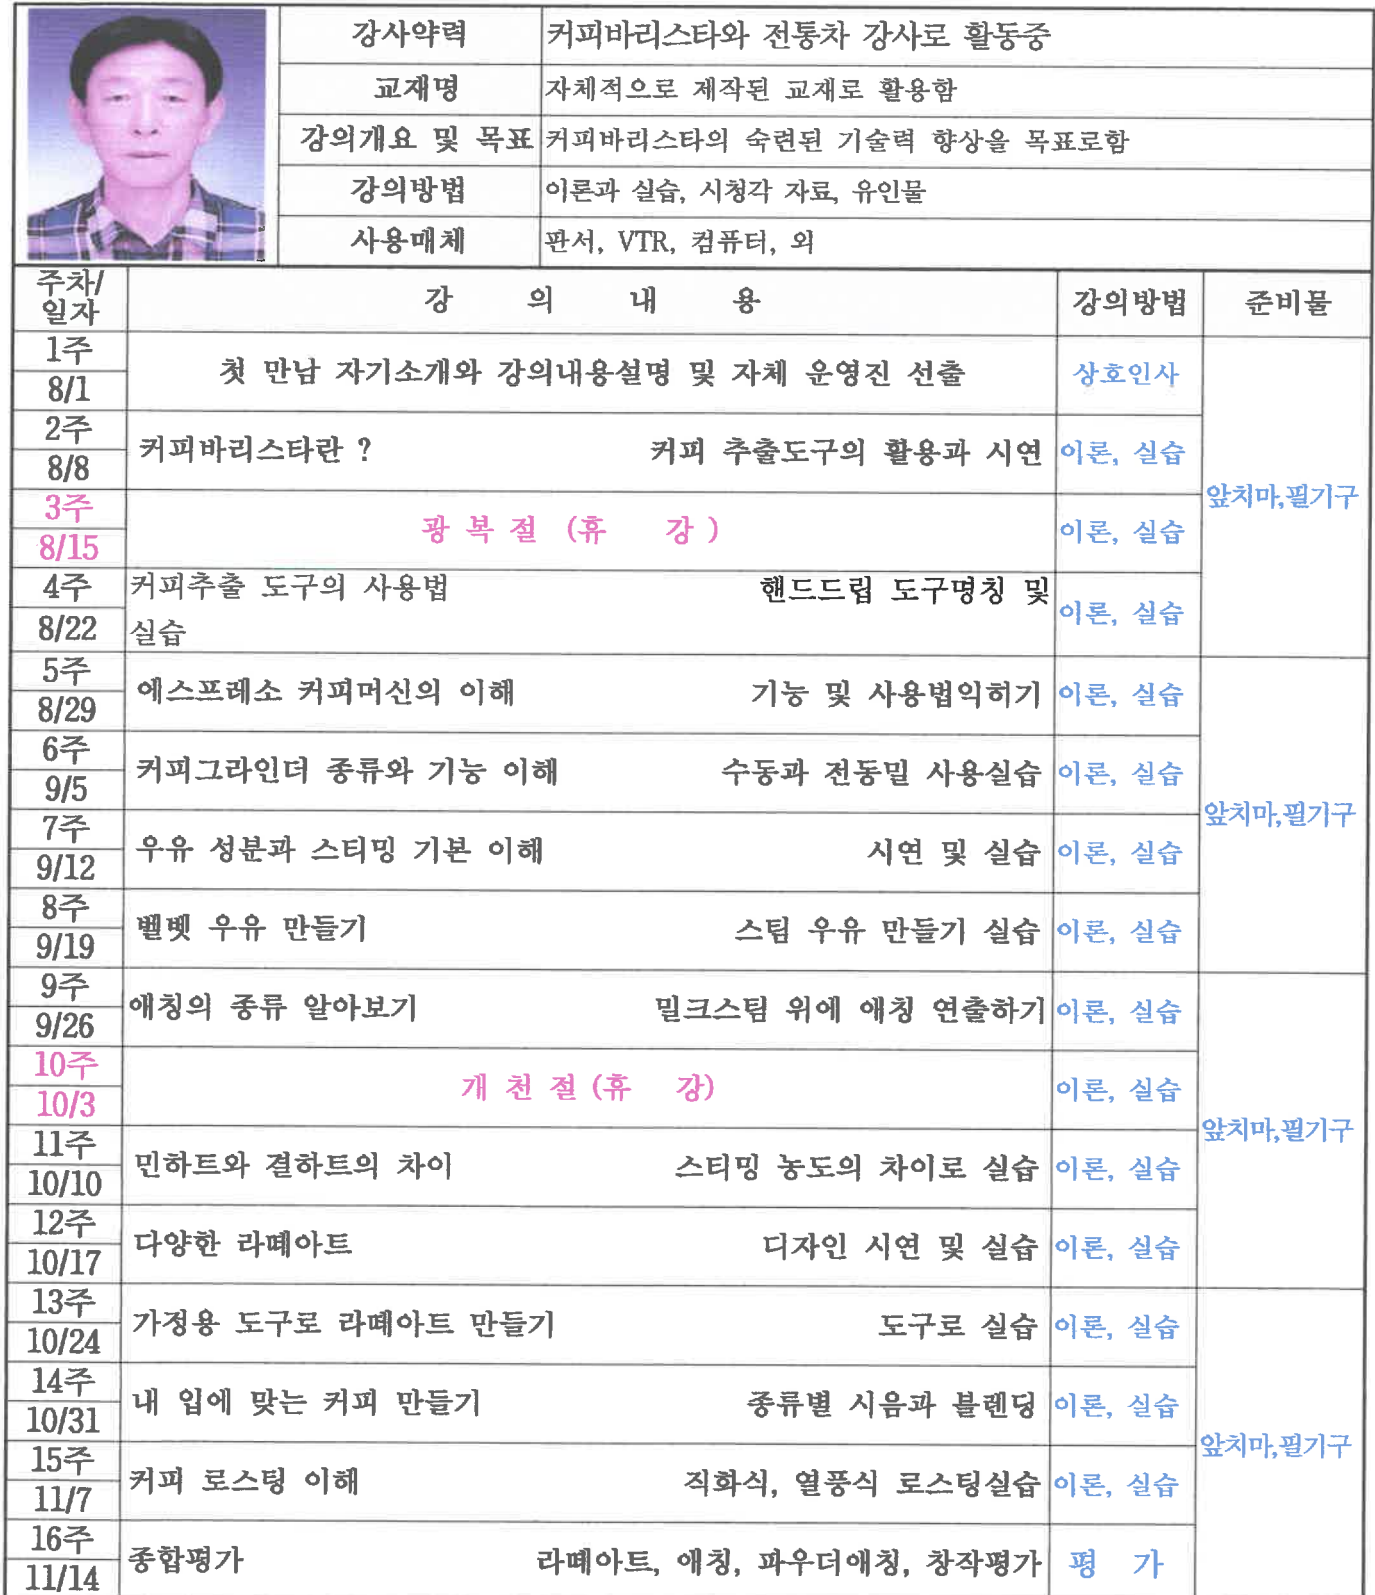 강사약력 커피바리스타와 전통차 강사로 활동중
교재명 자체적으로 제작된 교재로 활용함
강의개요 및 목표 커피바리스타의 숙련된 기술력 향상을 목표로함
강의방법 이론과 실습, 시청각 자료, 유인물
사용매체 판서, VTR, 컴퓨터, 외
주차/
일자
강 의 내 용 강의방법 준비물
1주
8/1
첫 만남 자기소개와 강의내용설명 및 자체 운영진 선출 상호인사
2주
8/8
커피바리스타란 ? 커피 추출도구의 활용과 시연 이론, 실습
앞치마,필기구
3주
8/15
광 복 절 (휴 강 ) 이론, 실습
4주
8/22
커피추출 도구의 사용법 핸드드립 도구명칭 및
실습
이론, 실습
5주
8/29
에스프레소 커피머신의 이해 기능 및 사용법익히기 이론, 실습
6주
9/5
커피그라인더 종류와 기능 이해 수동과 전동밀 사용실습 이론, 실습
앞치마,필기구
7주
9/12
우유 성분과 스티밍 기본 이해 시연 및 실습 이론, 실습
8주
9/19
벨벳 우유 만들기 스팀 우유 만들기 실습 이론, 실습
9주
9/26
애칭의 종류 알아보기 밀크스팀 위에 애칭 연출하기 이론, 실습
10주
10/3
개 천 절 (휴 강) 이론, 실습
앞치마,필기구
11주
10/10
민하트와 결하트의 차이 스티밍 농도의 차이로 실습 이론, 실습
12주
10/17
다양한 라떼아트 디자인 시연 및 실습 이론, 실습
13주
10/24
가정용 도구로 라떼아트 만들기 도구로 실습 이론, 실습
14주
10/31
내 입에 맞는 커피 만들기 종류별 시음과 블렌딩 이론, 실습
앞치마,필기구
15주
11/7
커피 로스팅 이해 직화식, 열풍식 로스팅실습 이론, 실습
16주
11/14
종합평가 라떼아트, 애칭, 파우더애칭, 창작평가 평 가